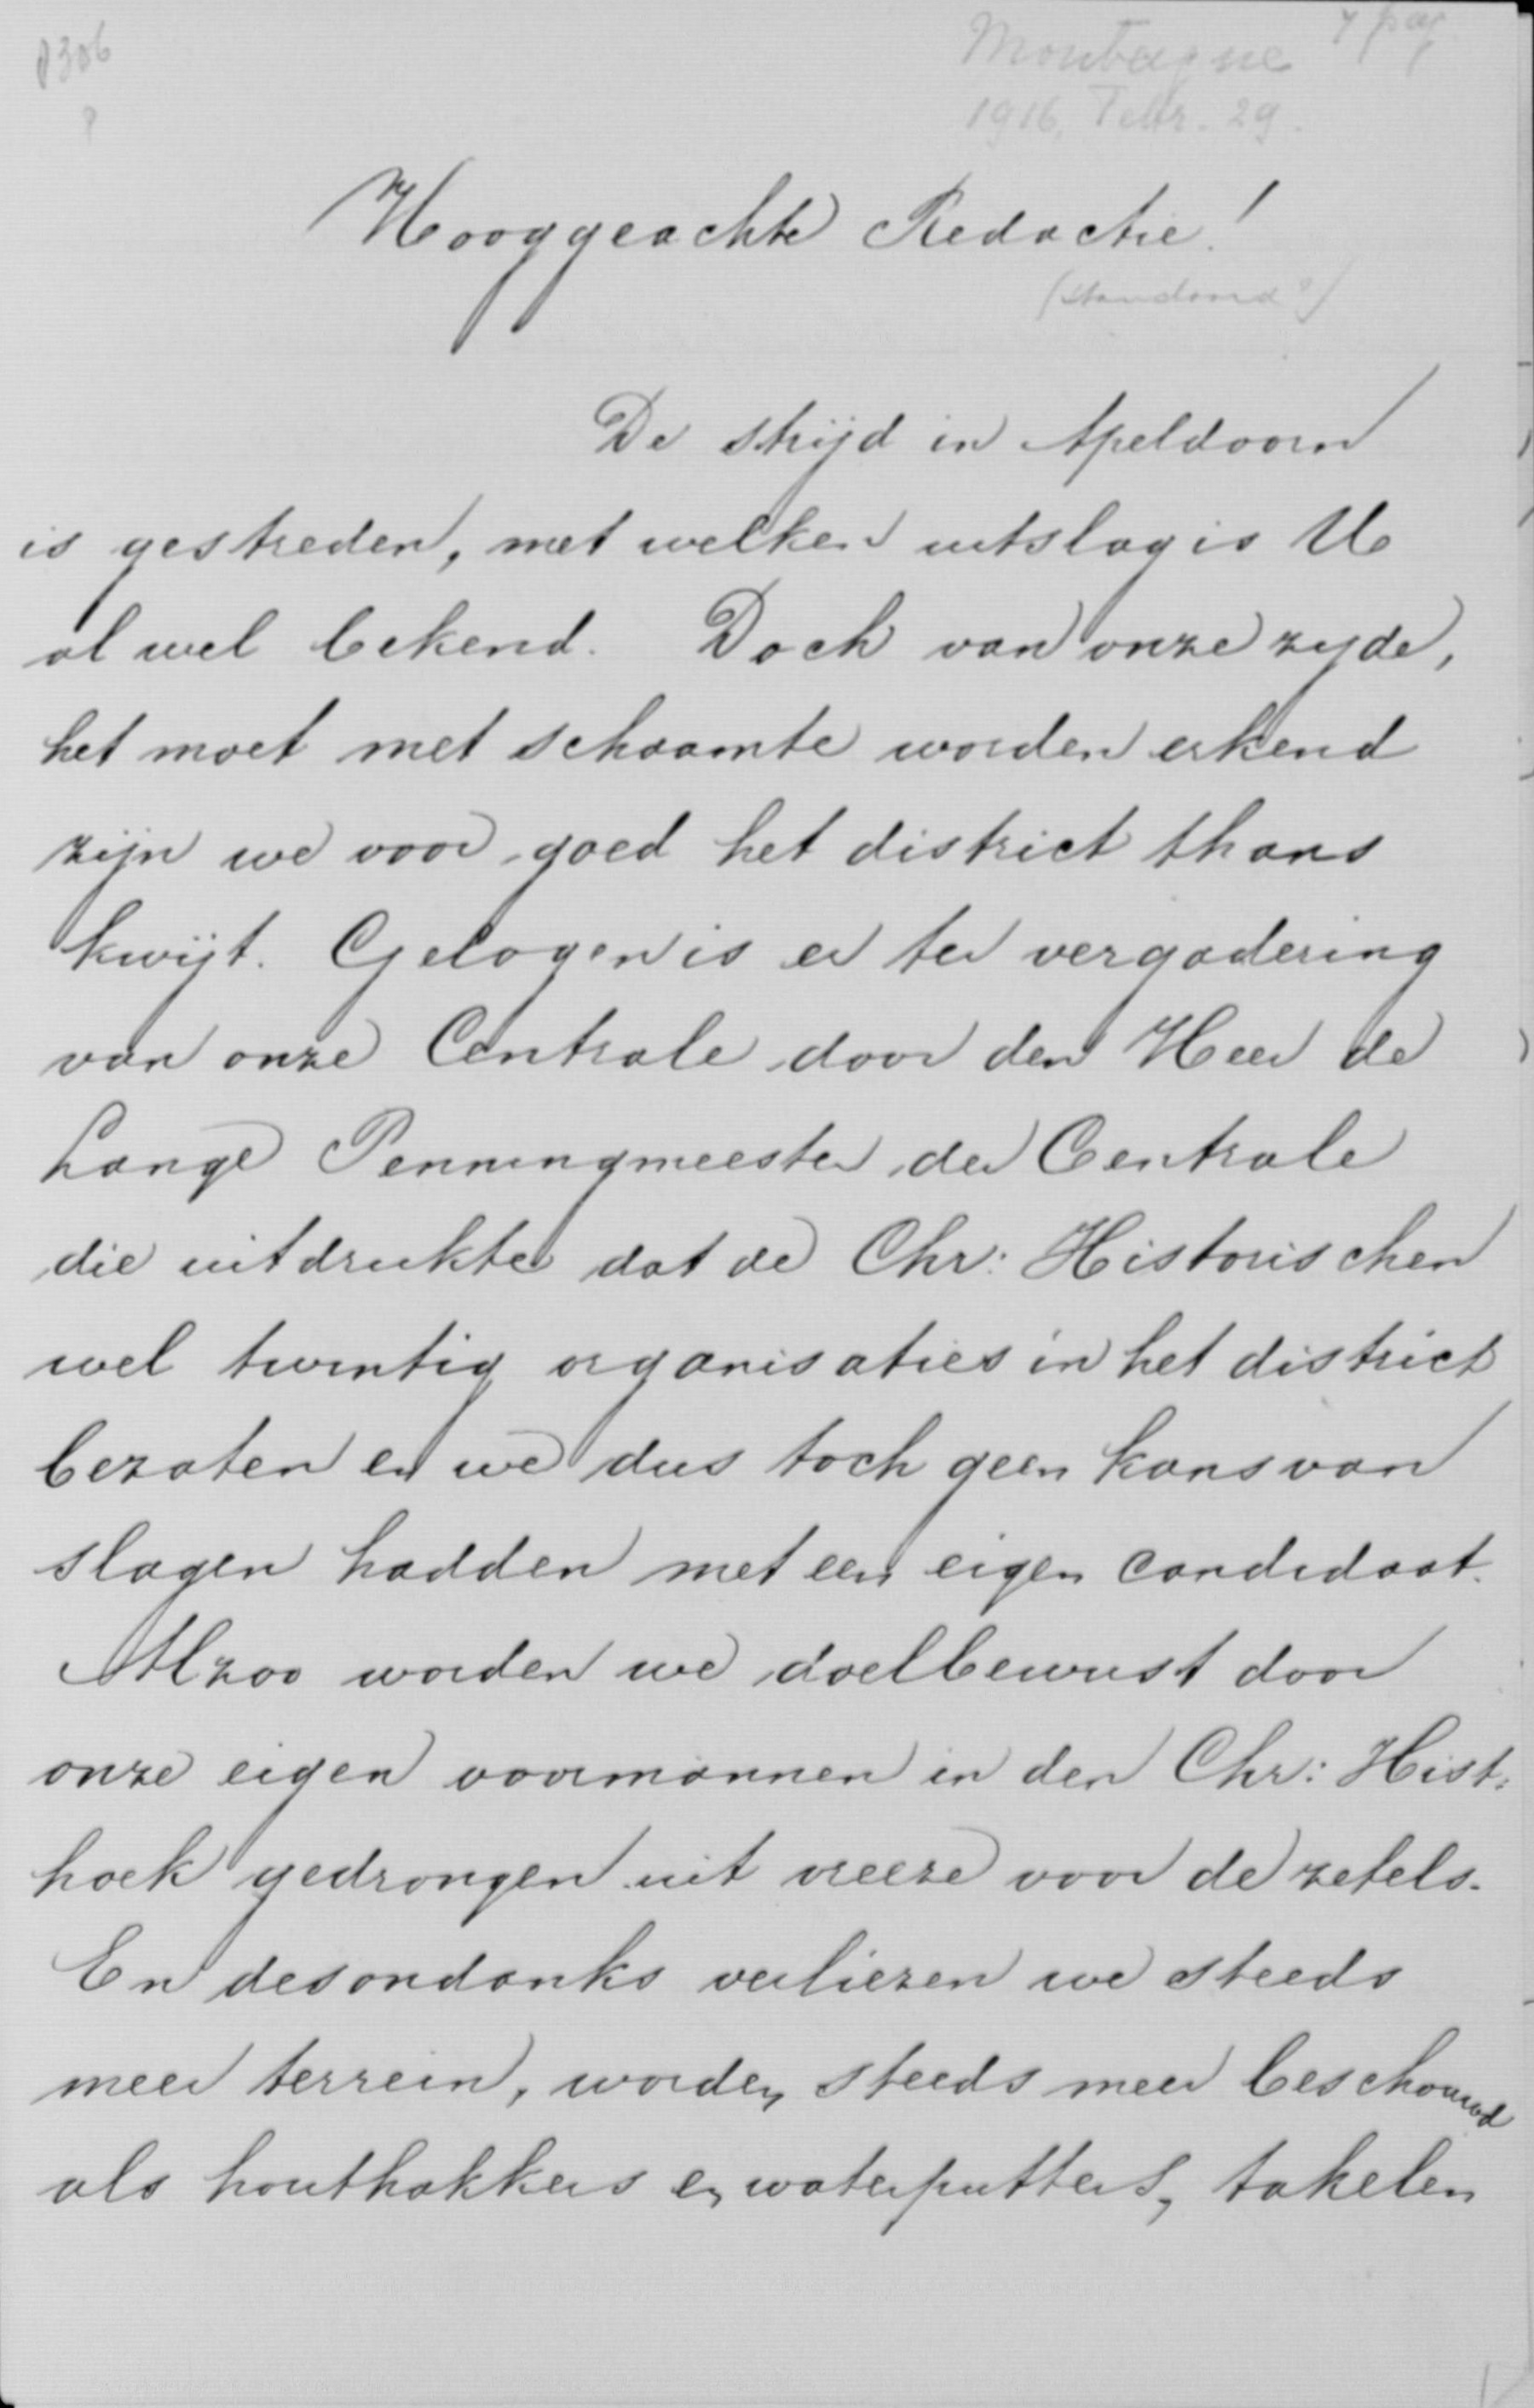 8306
?
Montagne 7 pag
1916, Febr. 29.
Hooggeachte Redactie!
(Standaard?)
De strijd in Apeldoorn
is gestreden, met welken uitslag is U
al wel bekend. Doch van onze zyde,
het moet met schaamte worden erkend
zijn we voor goed het district thans
kwijt. Gelogen is er ter vergadering
van onze Centrale door den Heer de
Lange Penningmeester der Centrale
die uitdrukte dat de Chr: Historischen
wel twintig organisaties in het district
bezaten en we dus toch geen kans van
slagen hadden met een eigen candidaat.
Alzoo worden we doelbewust door
onze eigen voormannen in den Chr: Hist:
hoek gedrongen uit vreeze voor de zetels.
En desondanks verliezen we steeds
meer terrein, worden steeds meer beschouwd
als houthakkers en waterputters, takelen